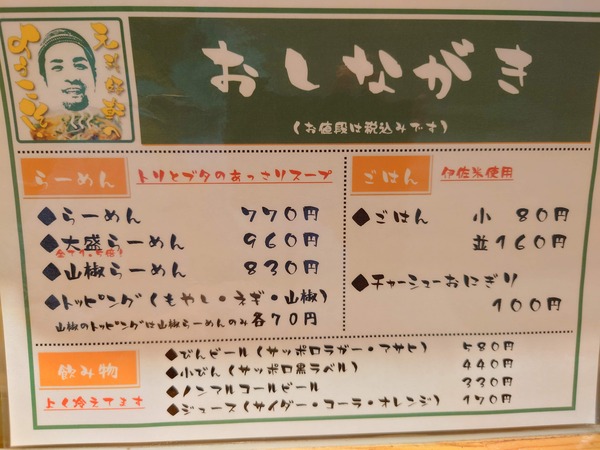 おしながき
(お値段は税込みです)
らーめん
トリとブタのあっさりスープ
◆らーめん 770円
◆大盛らーめん 960円
◆山椒らーめん 830円
◆トッピング(もやし・ネギ・山椒)
山椒のトッピングは山椒らーめんのみ 各70円
ごはん
伊佐米使用
◆ごはん 小 80円
並 160円
◆チャーシューおにぎり
100円
飲み物
よく冷えてます
◆びんビール(サッポロラガー・アサヒ) 580円
◆小びん(サッポロ黒ラベル) 440円
◆ノンアルコールビール 330円
◆ジュース(サイダー・コーラ・オレンジ) 170円